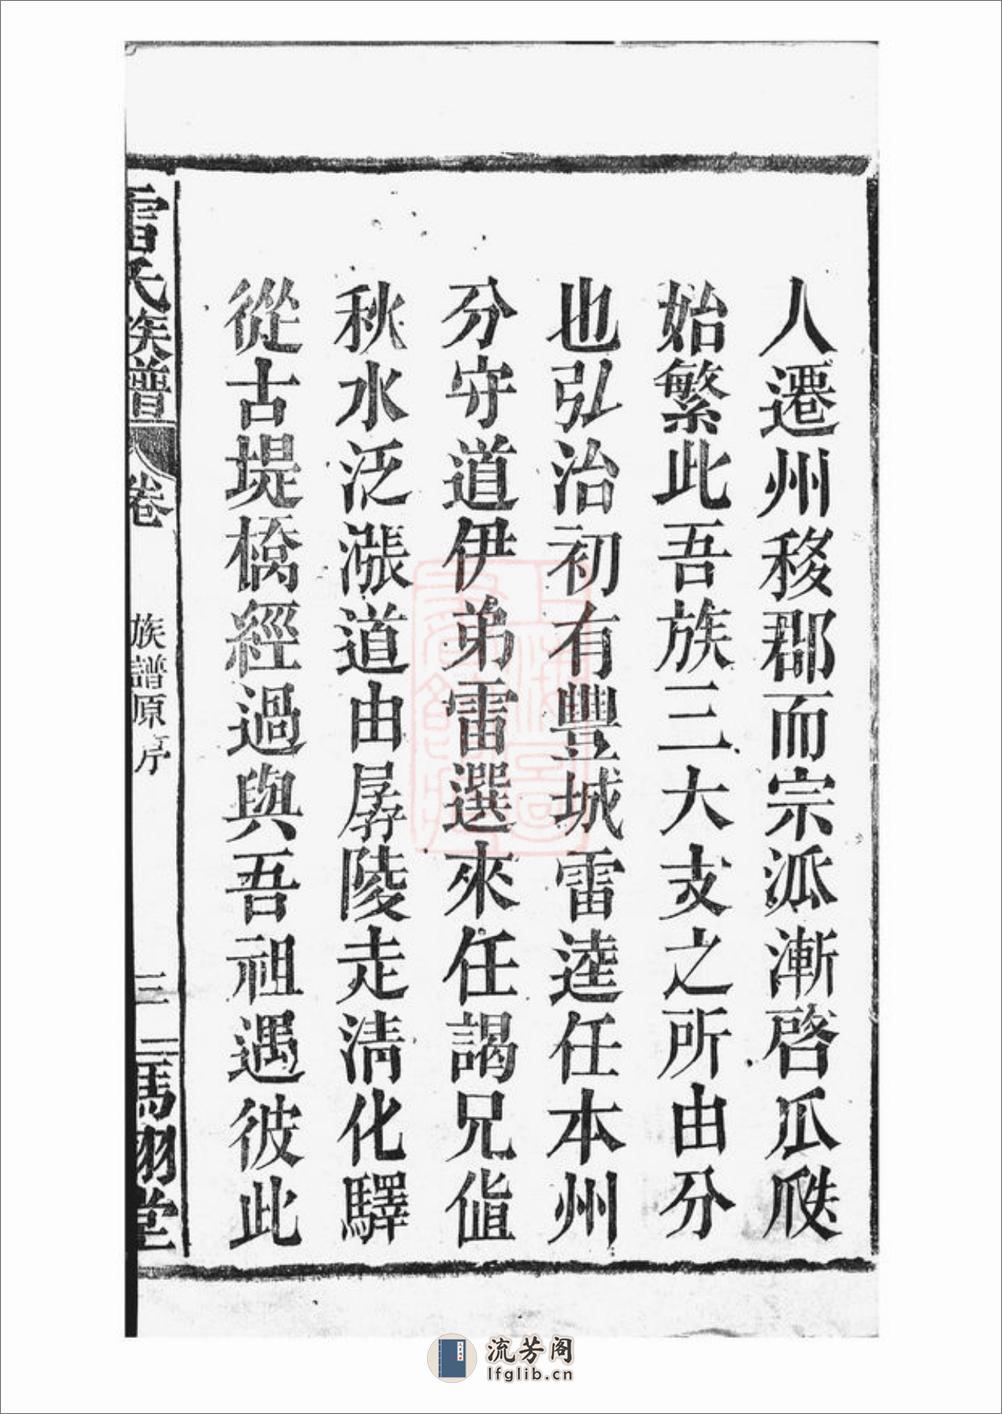 人遷州移郡而宗派漸啓瓜瓞
始繁此吾族三大支之所由分
也弘治初有豐城雷逵任本州
分守道伊弟雷選來任謁兄值
秋水泛漲道由孱陵走淸化驛
從古堤橋經過與吾祖遇彼此
雷氏族譜 卷
族譜原序
三
馮翊堂
流芳阁
lfglib.cn